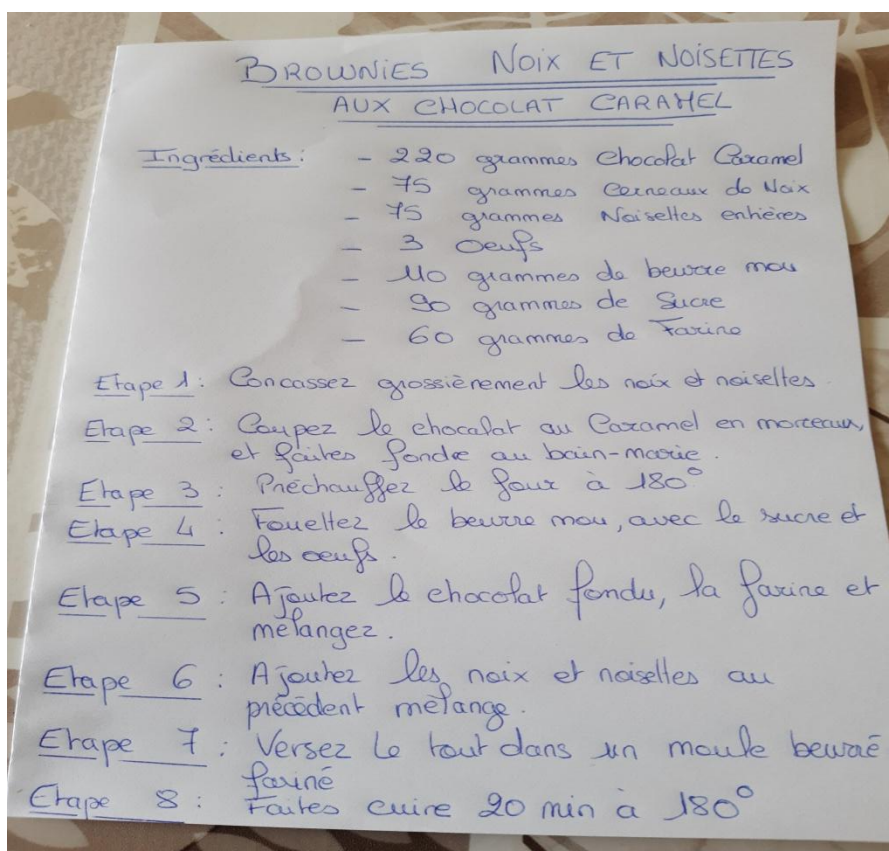 BROWNIES NOIX ET NOISETTES
AUX CHOCOLAT CARAMEL
Ingrédients : - 220 grammes Chocolat Caramel
- 75 grammes Cerneaux de Noix
- 75 grammes Noisettes entières
- 3 Oeufs
- 110 grammes de beurre mou
- 90 grammes de Sucre
- 60 grammes de Farine
Etape 1 : Concassez grossièrement les noix et noisettes.
Etape 2 : Coupez le chocolat au Caramel en morceaux,
et faites fondre au bain-marie.
Etape 3 : Préchauffez le four à 180°
Etape 4 : Fouettez le beurre mou, avec le sucre et
les oeufs.
Etape 5 : Ajoutez le chocolat fondu, la farine et
mélangez.
Etape 6 : Ajoutez les noix et noisettes au
précédent mélange.
Etape 7 : Versez le tout dans un moule beurré
fariné
Etape 8 : Faites cuire 20 min à 180°